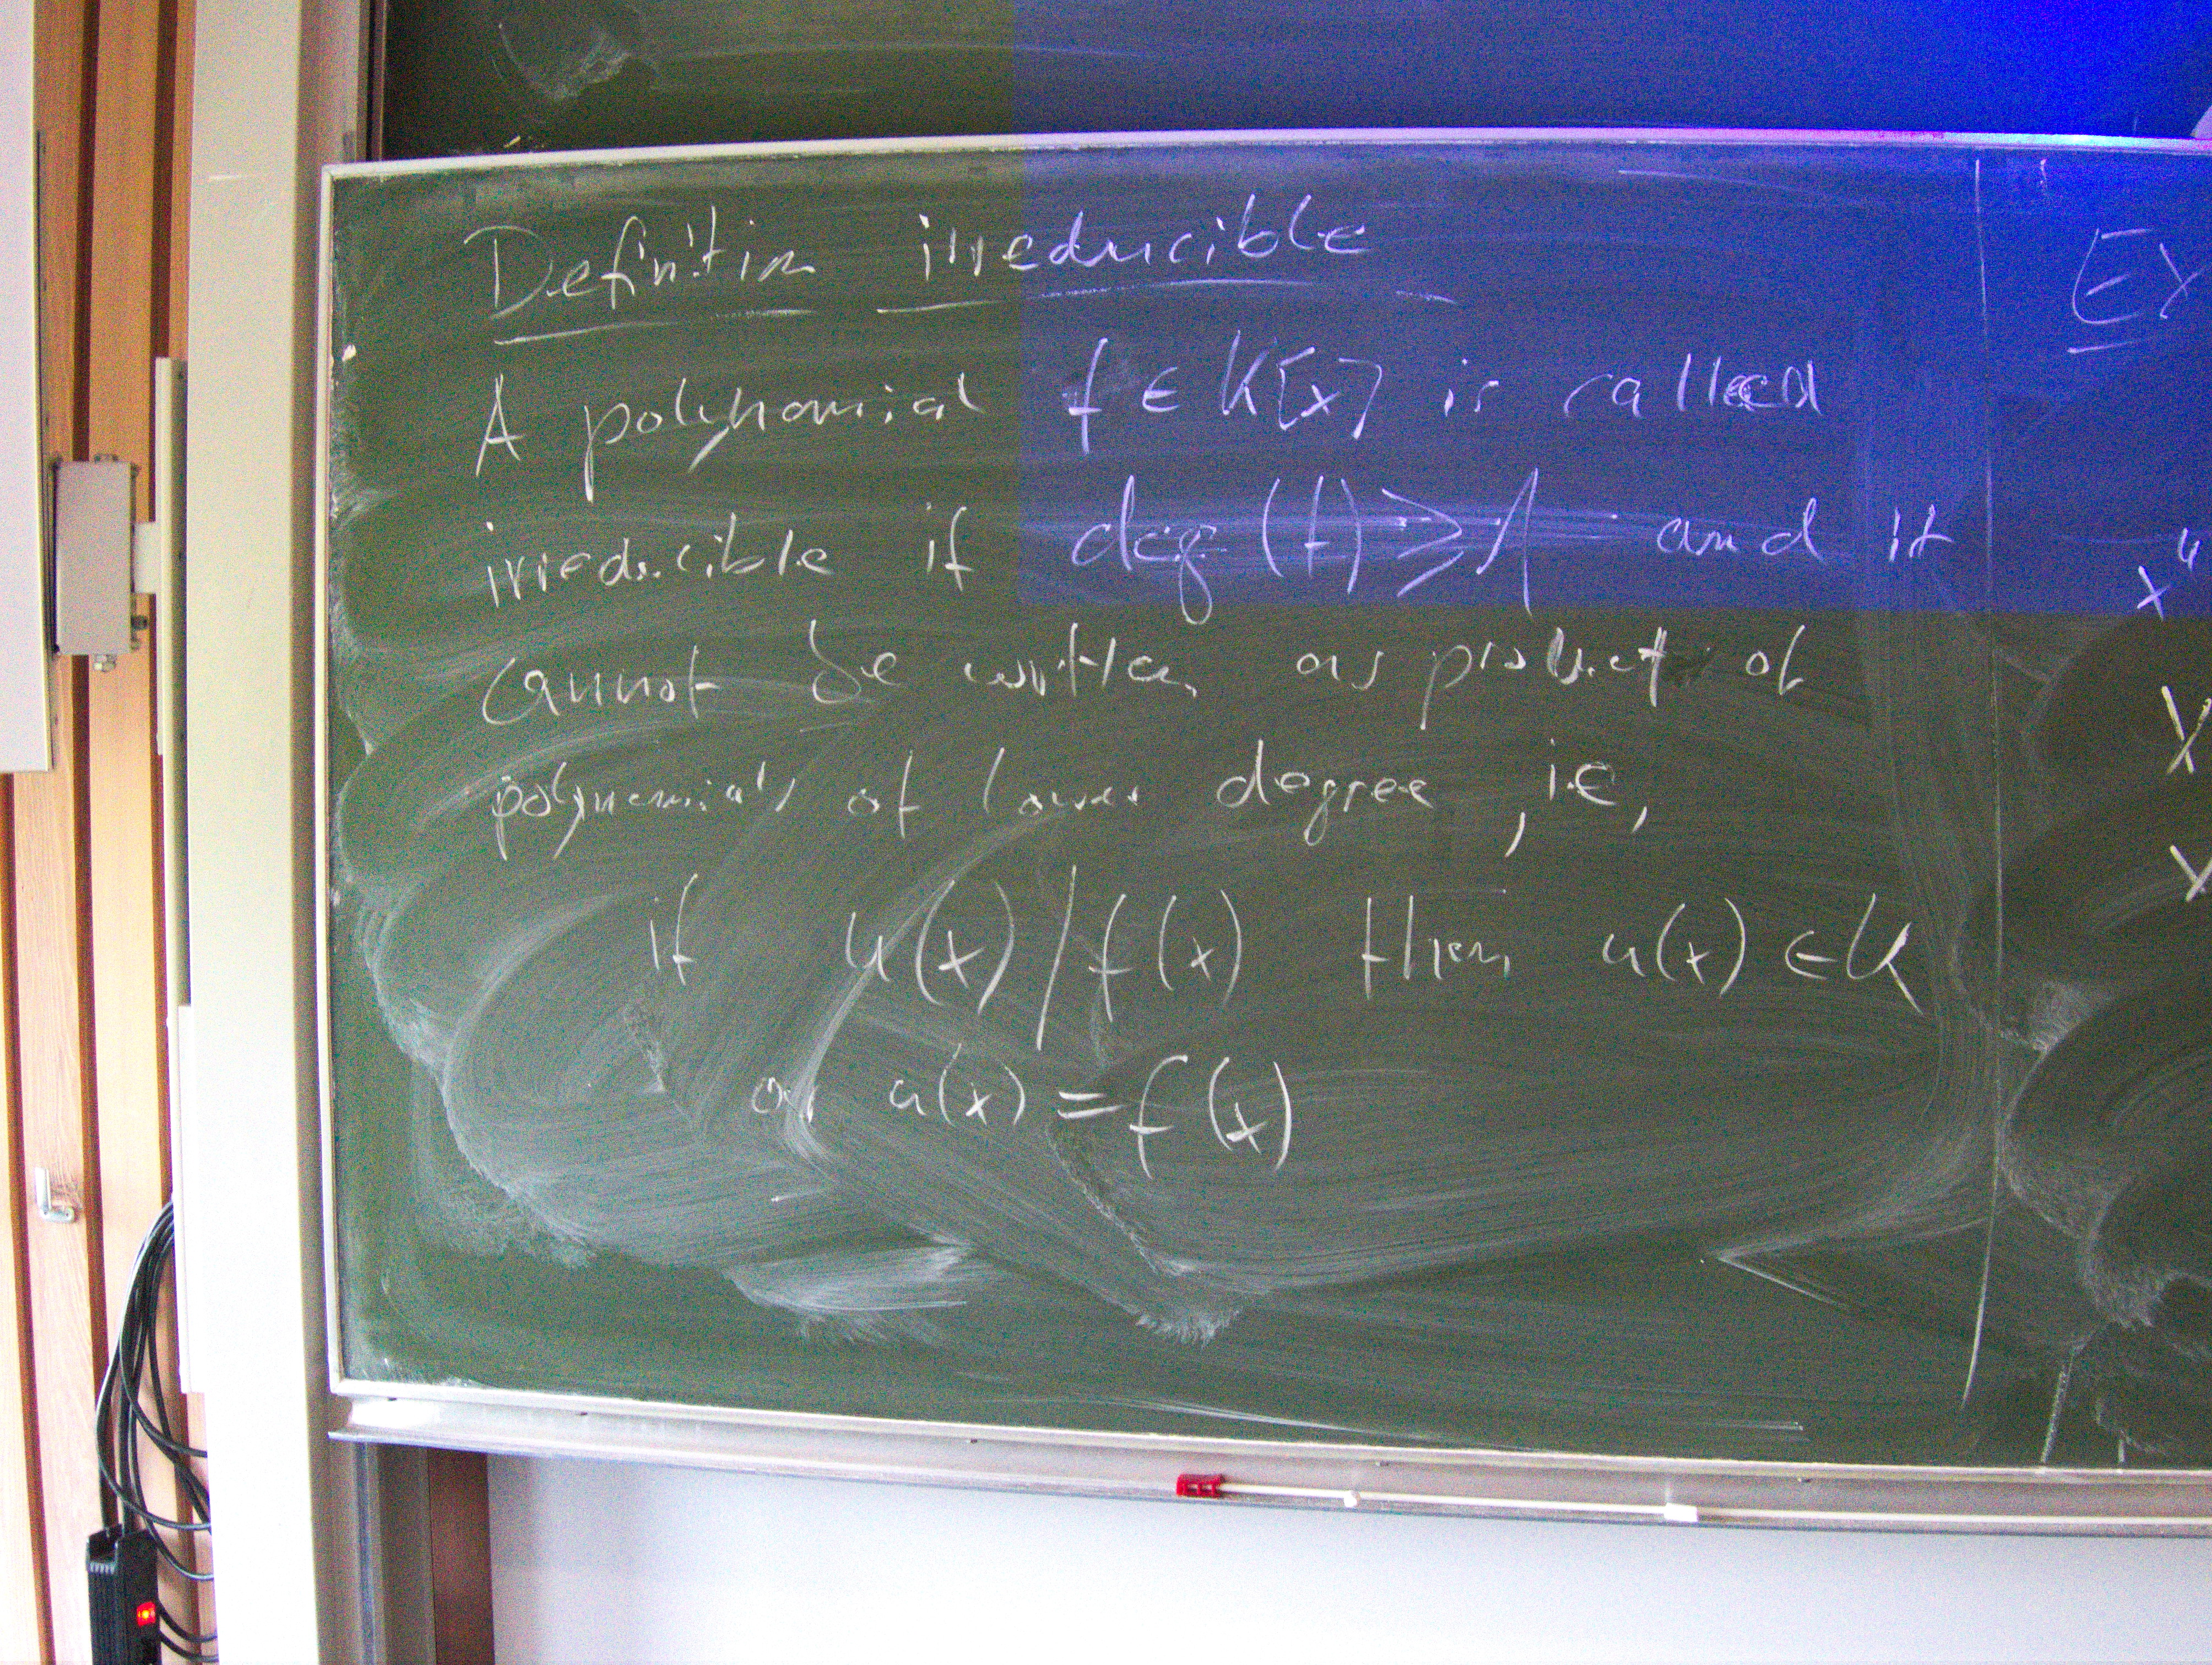 Definition irreducible
A polynomial f ∈ K[x] is called
irreducible if deg(f) ≥ 1 and it
cannot be written as product of
polynomials of lower degree, i.e,
if u(x) | f(x) then u(x) ∈ K
or u(x) = f(x)
Ex
x⁴
x
x